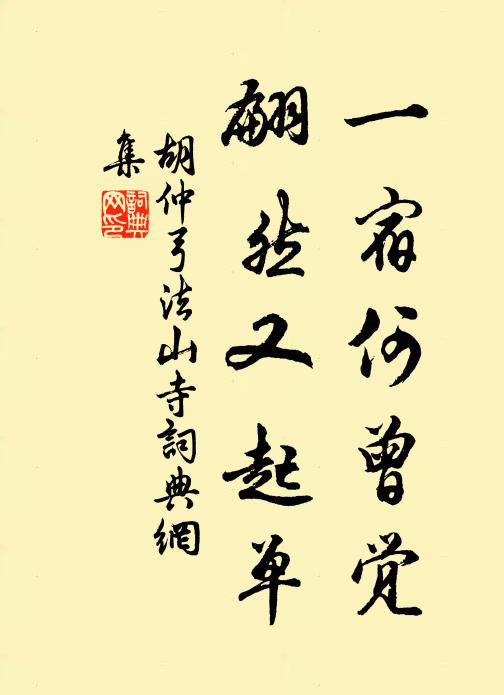 一宿何曾觉
翩然又起单
胡仲弓法山寺詞典網
集
詞典网印